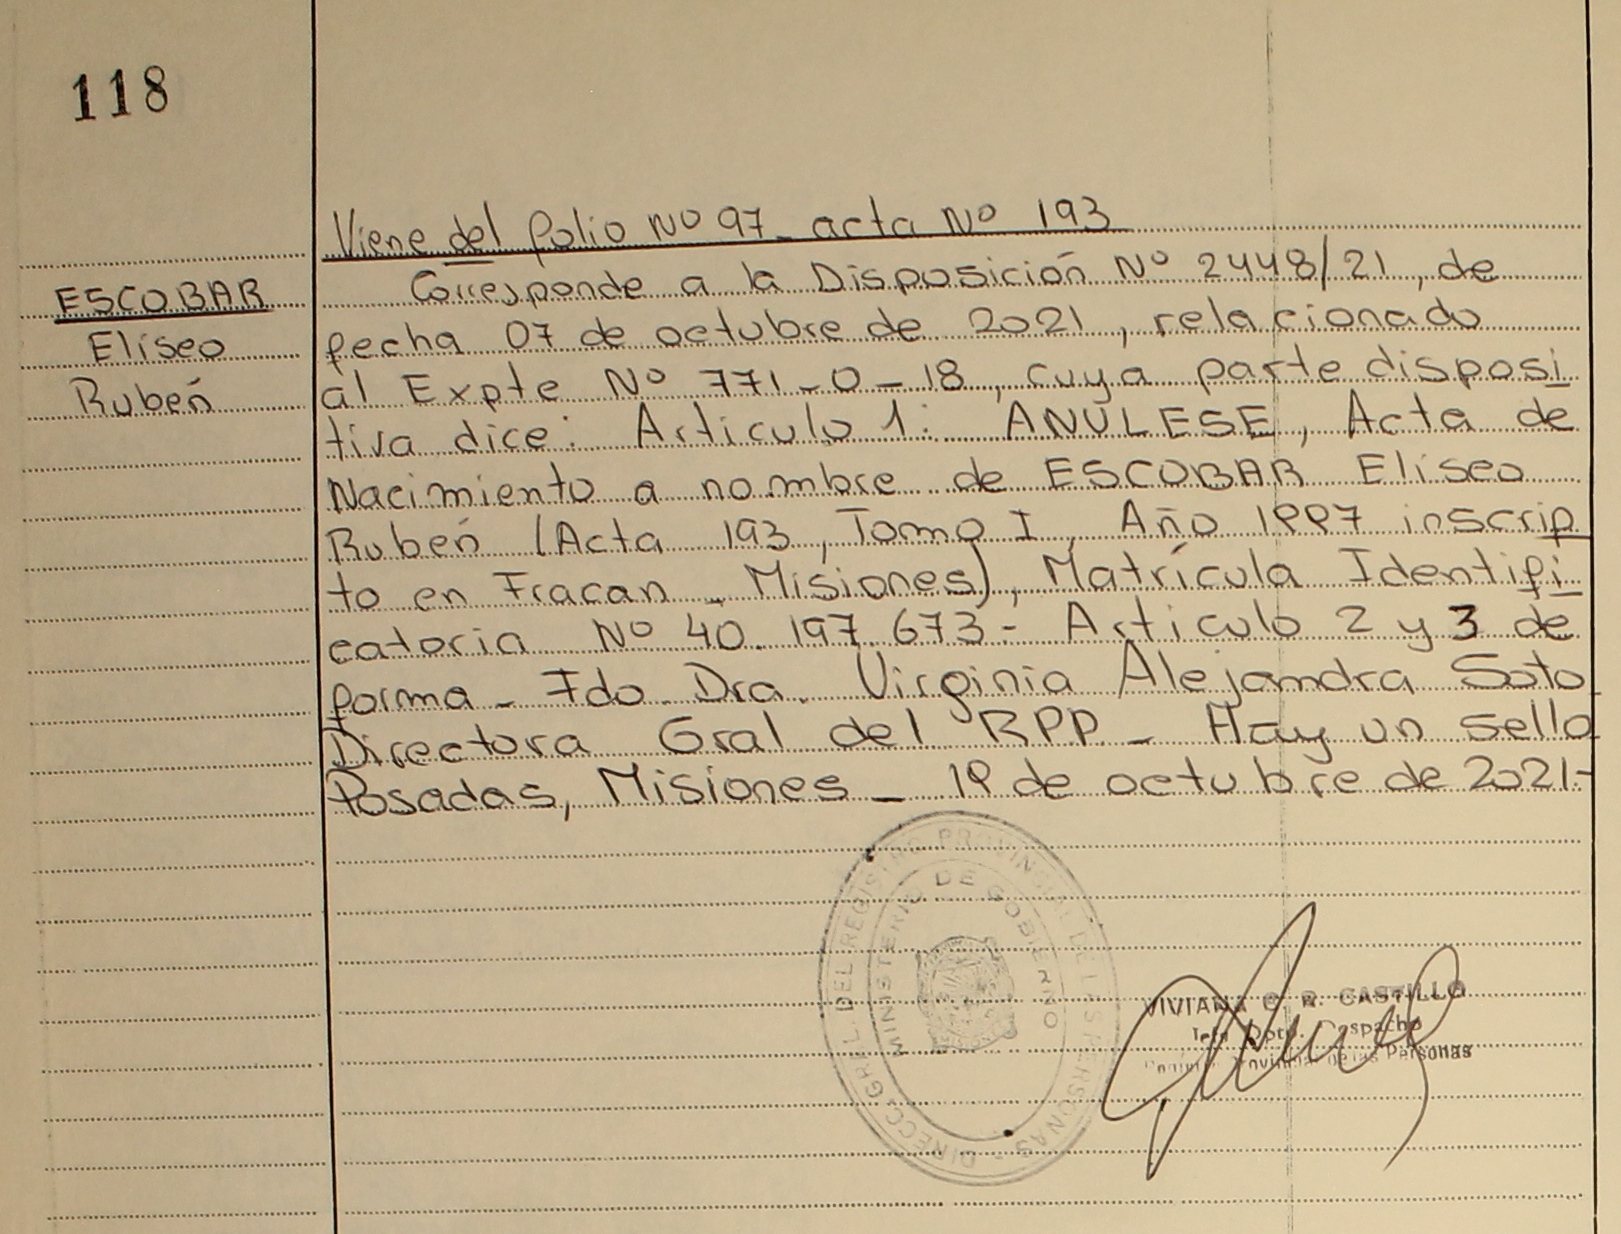 118
Viene del folio Nº 97 - acta Nº 193
ESCOBAR
Eliseo
Rubén
Corresponde a la Disposición Nº 2448/21, de
fecha 07 de octubre de 2021, relacionado
al Expte Nº 771-0-18, cuya parte disposi
tiva dice: Articulo 1: ANULESE, Acta de
Nacimiento a nombre de ESCOBAR Eliseo
Rubén (Acta 193, Tomo I, Año 1997 inscrip
to en Fracan - Misiones), Matrícula Identifi
catoria Nº 40.197.673- Articulo 2 y 3 de
forma - Fdo Dra. Virginia Alejandra Soto
Directora Gral del RPP - Hay un sello
Posadas, Misiones - 19 de octubre de 2021.-
DIRECC. GRAL. DEL REGISTRO PROVINCIAL DE LAS PERSONAS -
MINISTERIO DE GOBIERNO
VIVIANA C. R. CASTILLO
Jefa Dpto. Despacho
Provincial de las Personas